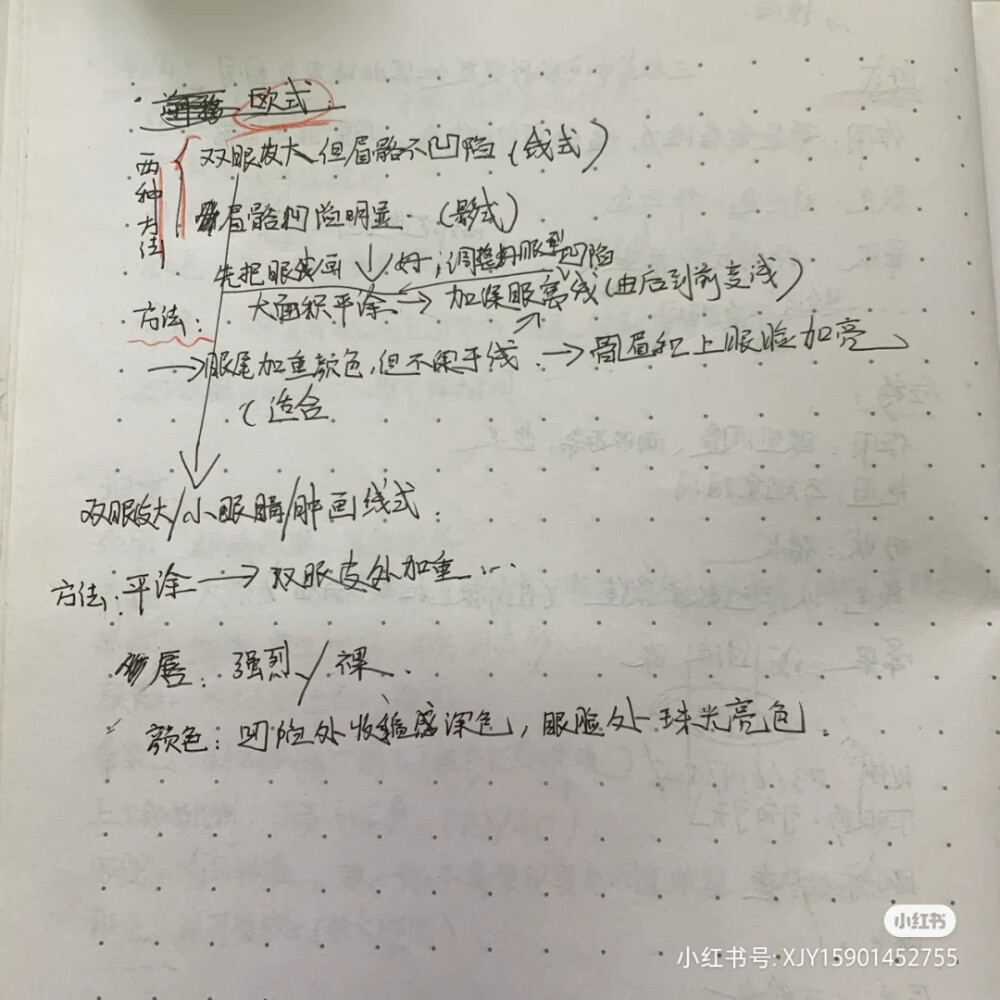 欧式
两种方法
双眼皮大但眉骼不凹陷(线式)
眉骼凹陷明显 (影式)
先把眼线画好,调整好眼型凹陷
大面积平涂→加深眼离线(由后到前变浅)
方法:
→眼尾加重颜色,但不深于线→眉和上眼脸加亮
适合
双眼皮大/小眼睛/肿画线式.
方法:平涂→双眼皮处加重...
唇:强烈/裸.
颜色:凹陷处收缩感深色,眼脸处珠光亮色.
小红书
小红书号:XJY15901452755